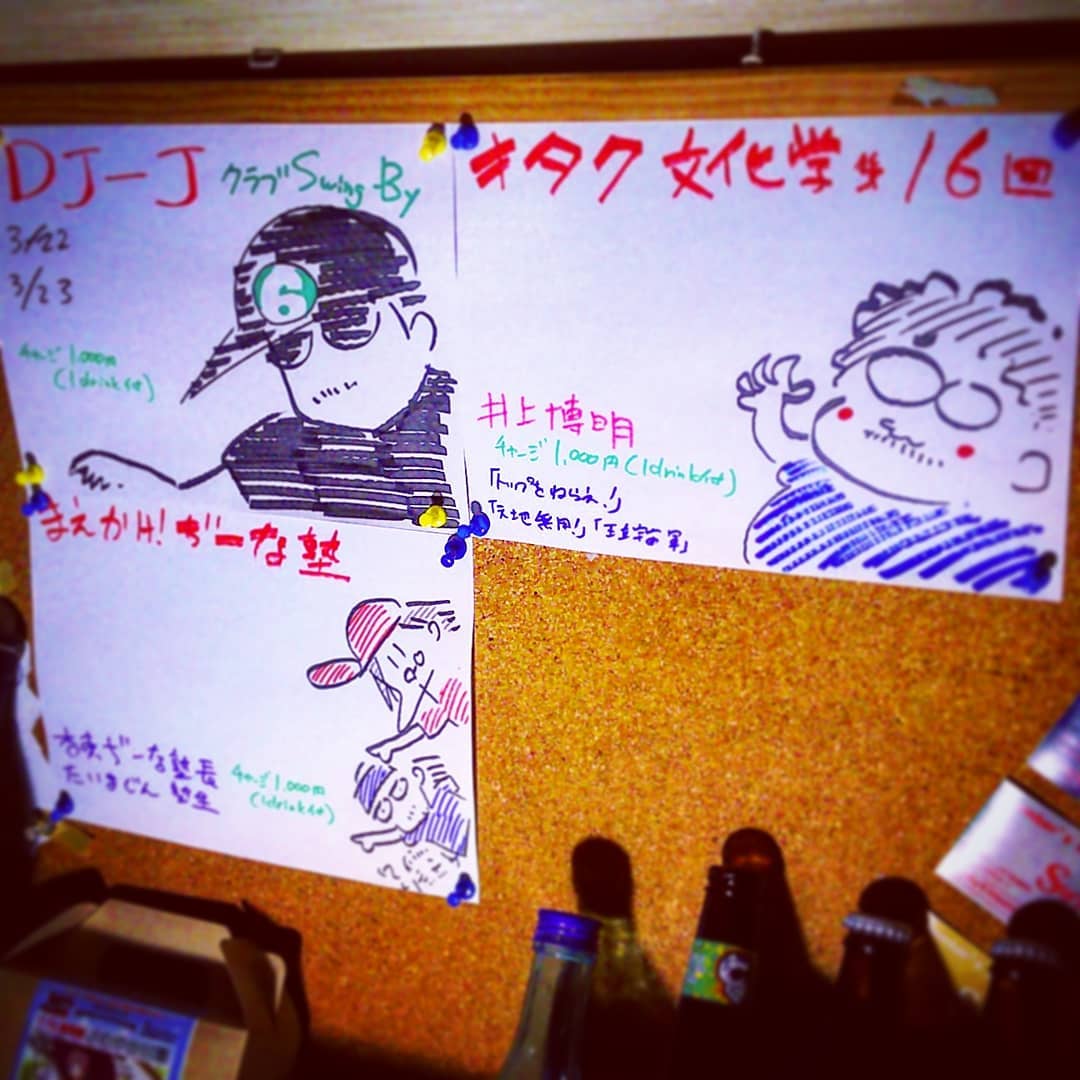 DJ-J クラブ Swing-By
3/22
3/23
6
チャージ 1,000円
(1drink付)
キタク文化学 16回
井上博明
チャージ 1,000円 (1drink付)
「トップをねらえ!」
「天地無用!」
まえかH! ぢーな塾
ぢーな塾長
たいまじん 塾生
チャージ 1,000円
(1drink付)